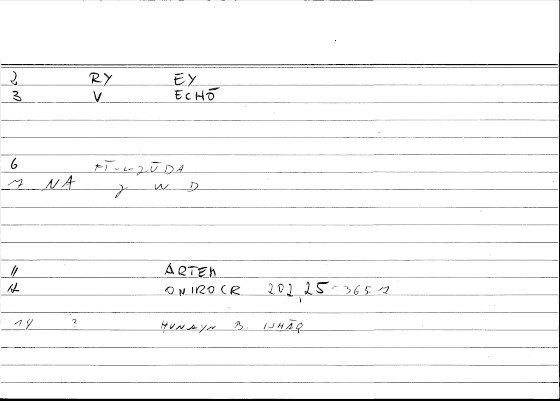 2 RY EY
3 V ECHŌ
6 FĪ-L-ǧŪDA
7 NA ǧ W D
11 ARTEM
12 ONIROCR 202,25-365
14 ? HUNAYN B. ISHĀQ